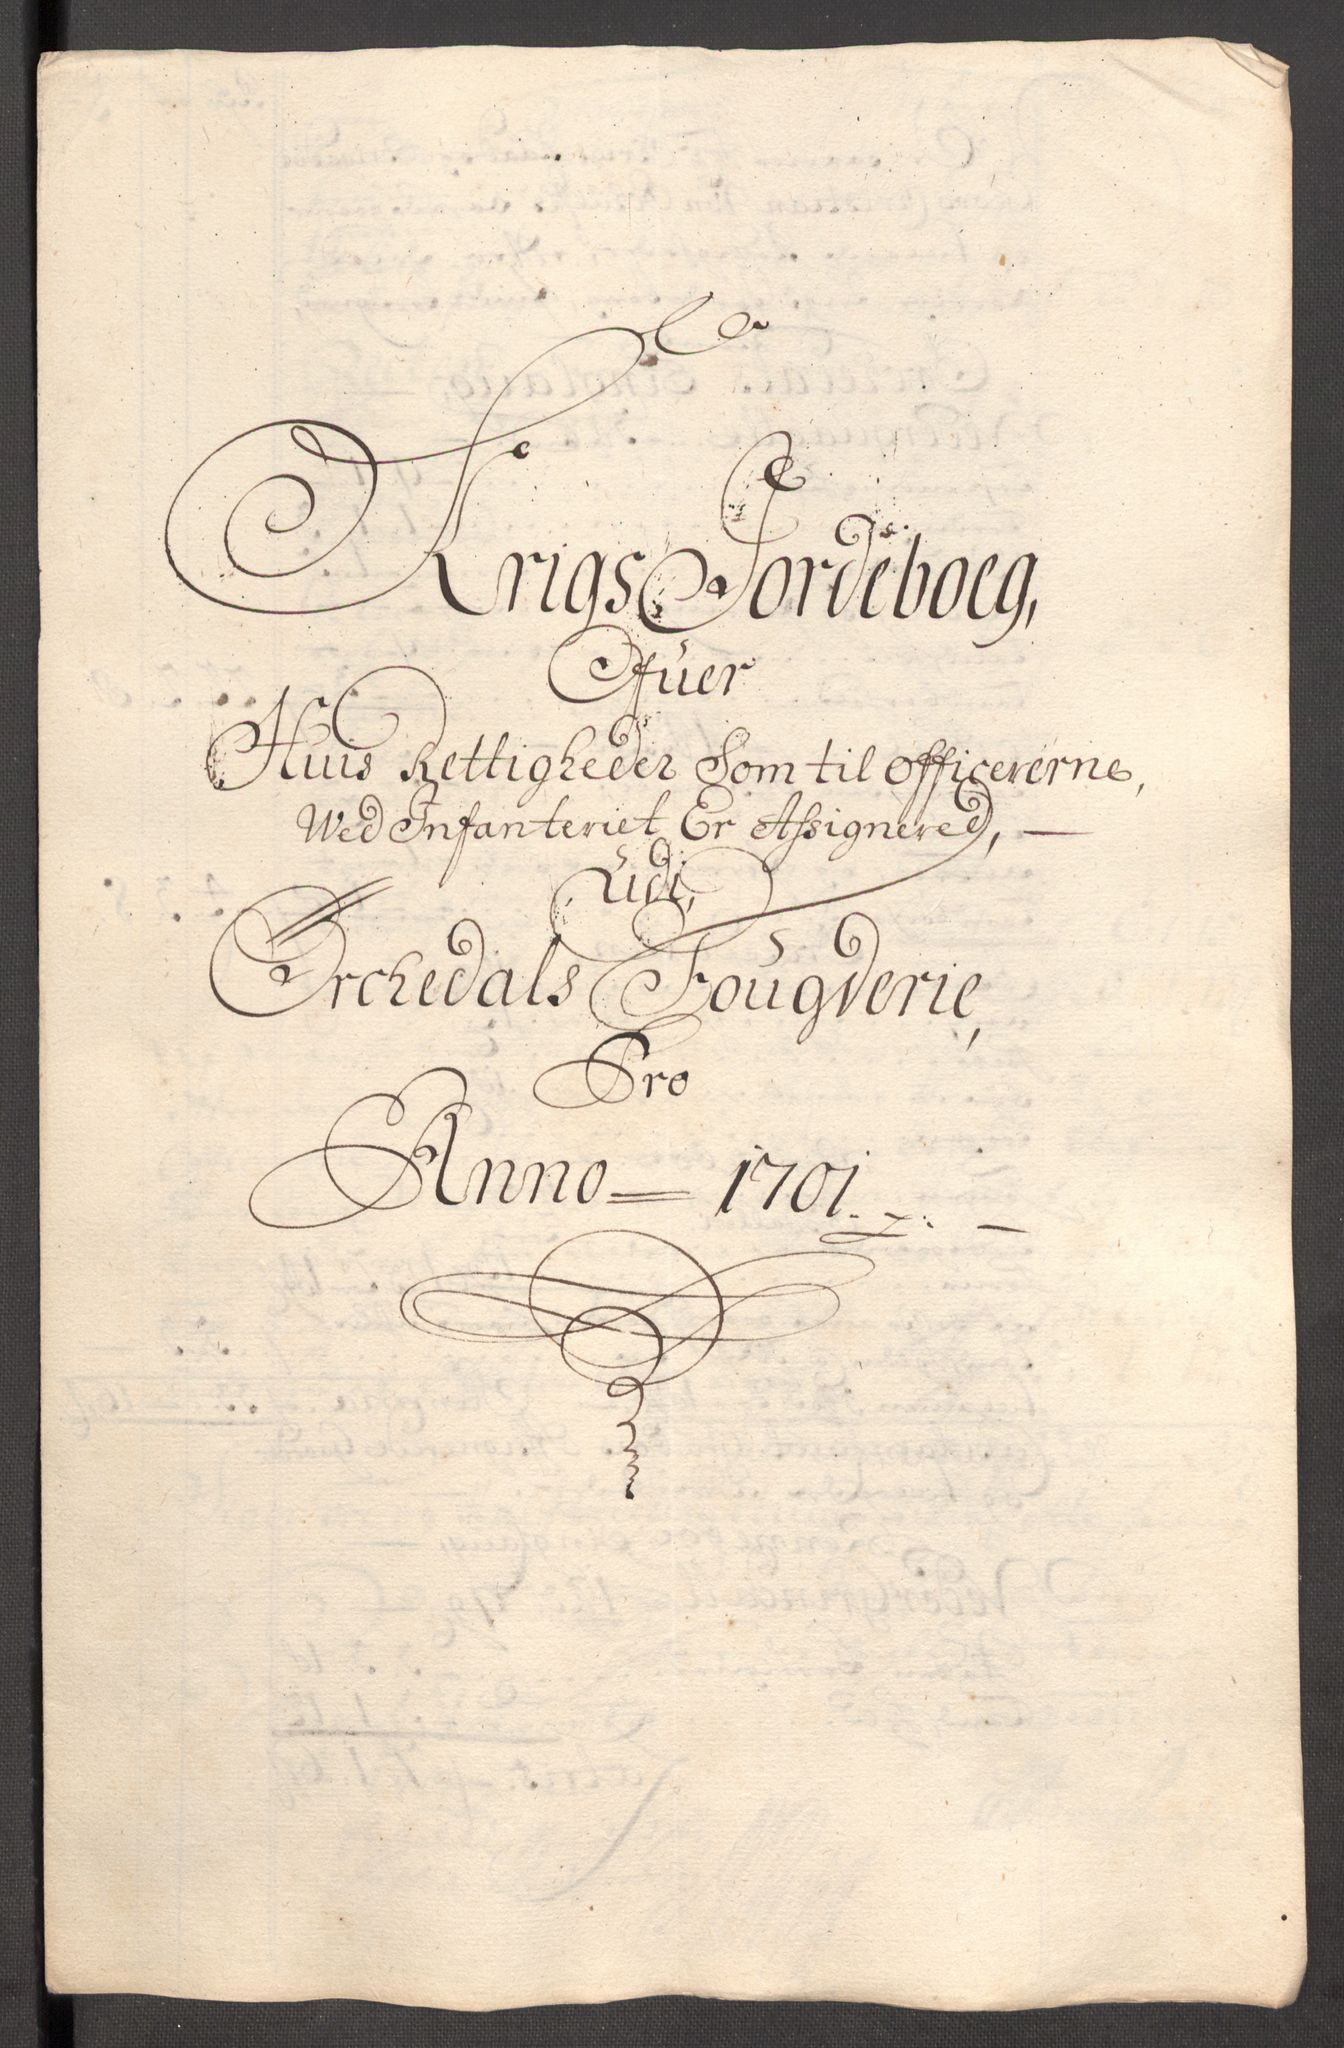 Krigs Jordeboeg,
Ofuer
Huis Rettigheder Som til officererne,
Wed Infanteriet Er Assignered,
Udi,
Orchedals Fougderie,
Pro
Anno 1701.